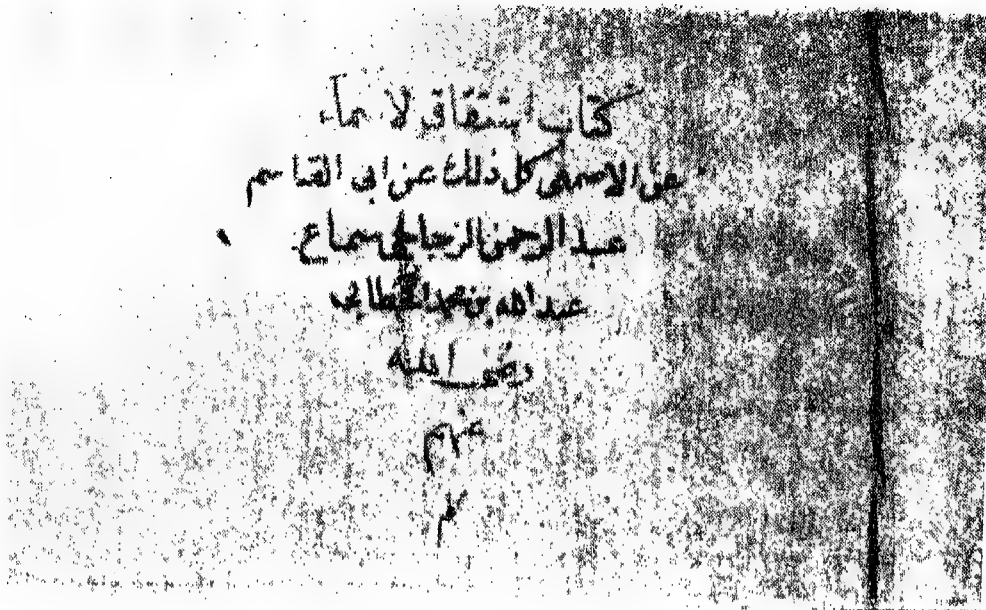 كتاب اشتقاق الاسماء
عن الاصمعى كل ذلك عن ابى القاسم
عبد الرحمن الزجاجى سماع
عبد الله بن محمد الخطابى
رضى الله
عنهم